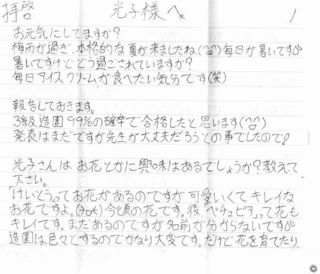 拝啓 光子様へ 1
お元気にしてますか?
梅雨が過ぎ、本格的な夏が来ましたね(^^)毎日が暑いです
暑いですけどどう過ごされていますか?
毎日アイスクリームが食べたい気分です(笑)
報告しておきます。
3級造園99%の確率で合格したと思います(^^)
発表はまだですが先生が大丈夫だろうとの事でしたので
光子さんはお花とかに興味はあるでしょうか?教えて
下さい。
「けいとう」ってお花があるのですが可愛いくてキレイな
お花ですよ。今頃の花です。後"ペチュニア"って花も
キレイです。まだあるのですが名前が分からないです
造園は色々とするのでかなり大変です。だけど花を育てたり